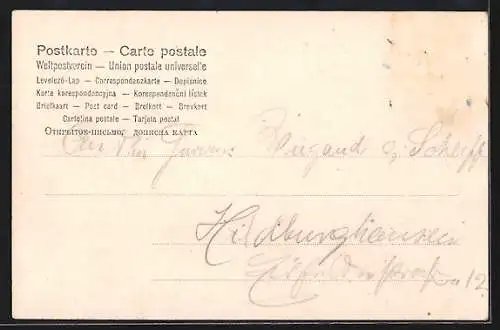 Postkarte — Carte postale
Weltpostverein — Union postale universelle
Levelező-Lap — Correspondenzkarte — Dopisnice
Karta korespondencyjna — Korespondenční lístek
Briefkaart — Post card — Brefkort — Brevkort
Cartolina postale — Tarjeta postal
Открытое-письмо, дописна карта
Wiegand
Hildburghausen
12